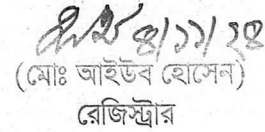 ৪/১১/২৪
(মোঃ আইউব হোসেন)
রেজিস্ট্রার